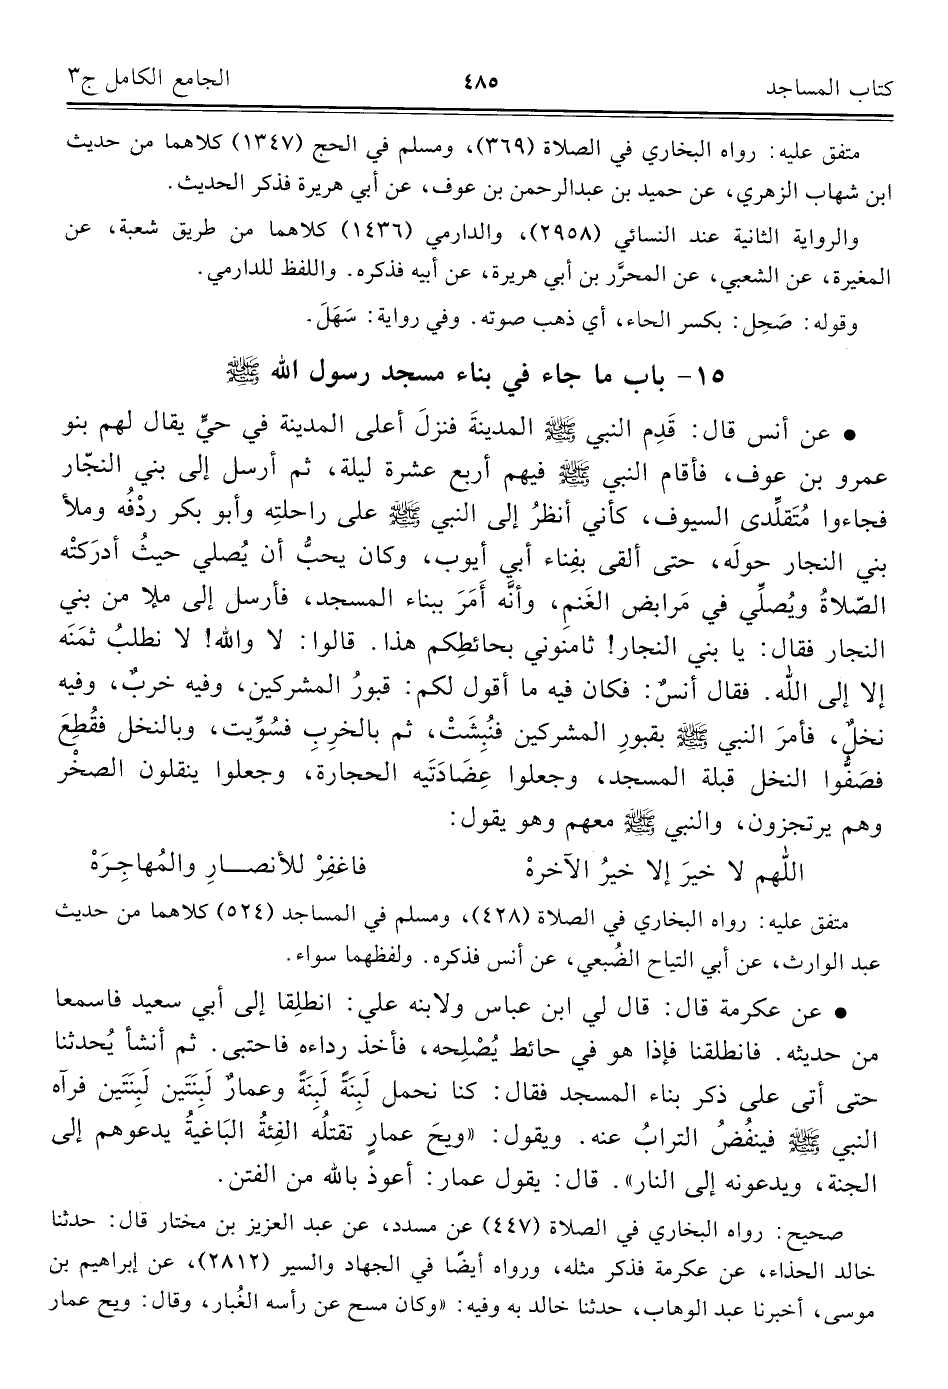 كتاب المساجد ٤٨٥ الجامع الكامل ج٣
متفق عليه: رواه البخاري في الصلاة (٣٦٩)، ومسلم في الحج (١٣٤٧) كلاهما من حديث
ابن شهاب الزهري، عن حميد بن عبدالرحمن بن عوف، عن أبي هريرة فذكر الحديث.
والرواية الثانية عند النسائي (٢٩٥٨)، والدارمي (١٤٣٦) كلاهما من طريق شعبة، عن
المغيرة، عن الشعبي، عن المحرَّر بن أبي هريرة، عن أبيه فذكره. واللفظ للدارمي.
وقوله: صَحِل: بكسر الحاء، أي ذهب صوته. وفي رواية: سَهَلَ.
١٥- باب ما جاء في بناء مسجد رسول الله ﷺ
● عن أنس قال: قَدِم النبي ﷺ المدينةَ فنزلَ أعلى المدينة في حيٍّ يقال لهم بنو
عمرو بن عوف، فأقام النبي ﷺ فيهم أربع عشرة ليلة، ثم أرسل إلى بني النجّار
فجاءوا مُتَقلِّدى السيوف، كأني أنظرُ إلى النبي ﷺ على راحلتِه وأبو بكر ردْفُه وملأ
بني النجار حولَه، حتى ألقى بفِناء أبي أيوب، وكان يحبُّ أن يُصلي حيثُ أدرَكتْه
الصّلاةُ ويُصلِّي في مَرابض الغَنمِ، وأنَّه أَمَرَ ببناء المسجد، فأرسل إلى ملإ من بني
النجار فقال: يا بني النجار! ثامنوني بحائطِكم هذا. قالوا: لا والله! لا نطلبُ ثمَنَه
إلا إلى الله. فقال أنسٌ: فكان فيه ما أقول لكم: قبورُ المشركين، وفيه خربٌ، وفيه
نخلٌ، فأمرَ النبي ﷺ بقبورِ المشركين فنُبِشَتْ، ثم بالخرِبِ فسُوِّيت، وبالنخل فقُطِعَ
فصَفُّوا النخل قبلة المسجد، وجعلوا عِضَادَتَيه الحجارة، وجعلوا ينقلون الصخْر
وهم يرتجزون، والنبي ﷺ معهم وهو يقول:
اللهم لا خيرَ إلا خيرُ الآخرهْ فاغفِرْ للأنصـــارِ والمُهاجِـرَهْ
متفق عليه: رواه البخاري في الصلاة (٤٢٨)، ومسلم في المساجد (٥٢٤) كلاهما من حديث
عبد الوارث، عن أبي التياح الضُبعي، عن أنس فذكره. ولفظهما سواء.
● عن عكرمة قال: قال لي ابن عباس ولابنه علي: انطلِقا إلى أبي سعيد فاسمعا
من حديثه. فانطلقنا فإذا هو في حائط يُصْلِحه، فأخذ رداءه فاحتبى. ثم أنشأ يُحدثنا
حتى أتى على ذكر بناء المسجد فقال: كنا نحمل لَبِنَةً لَبِنَةً وعمارٌ لَبِنَتَين لَبِنَتَين فرآه
النبي ﷺ فينفُضُ الترابُ عنه. ويقول: «ويحَ عمارٍ تقتلُه الفِئةُ البَاغيةُ يدعوهم إلى
الجنة، ويدعونه إلى النار». قال: يقول عمار: أعوذ بالله من الفتن.
صحيح: رواه البخاري في الصلاة (٤٤٧) عن مسدد، عن عبد العزيز بن مختار قال: حدثنا
خالد الحذاء، عن عكرمة فذكر مثله، ورواه أيضًا في الجهاد والسير (٢٨١٢)، عن إبراهيم بن
موسى، أخبرنا عبد الوهاب، حدثنا خالد به وفيه: «وكان مسح عن رأسه الغُبار، وقال: ويح عمار